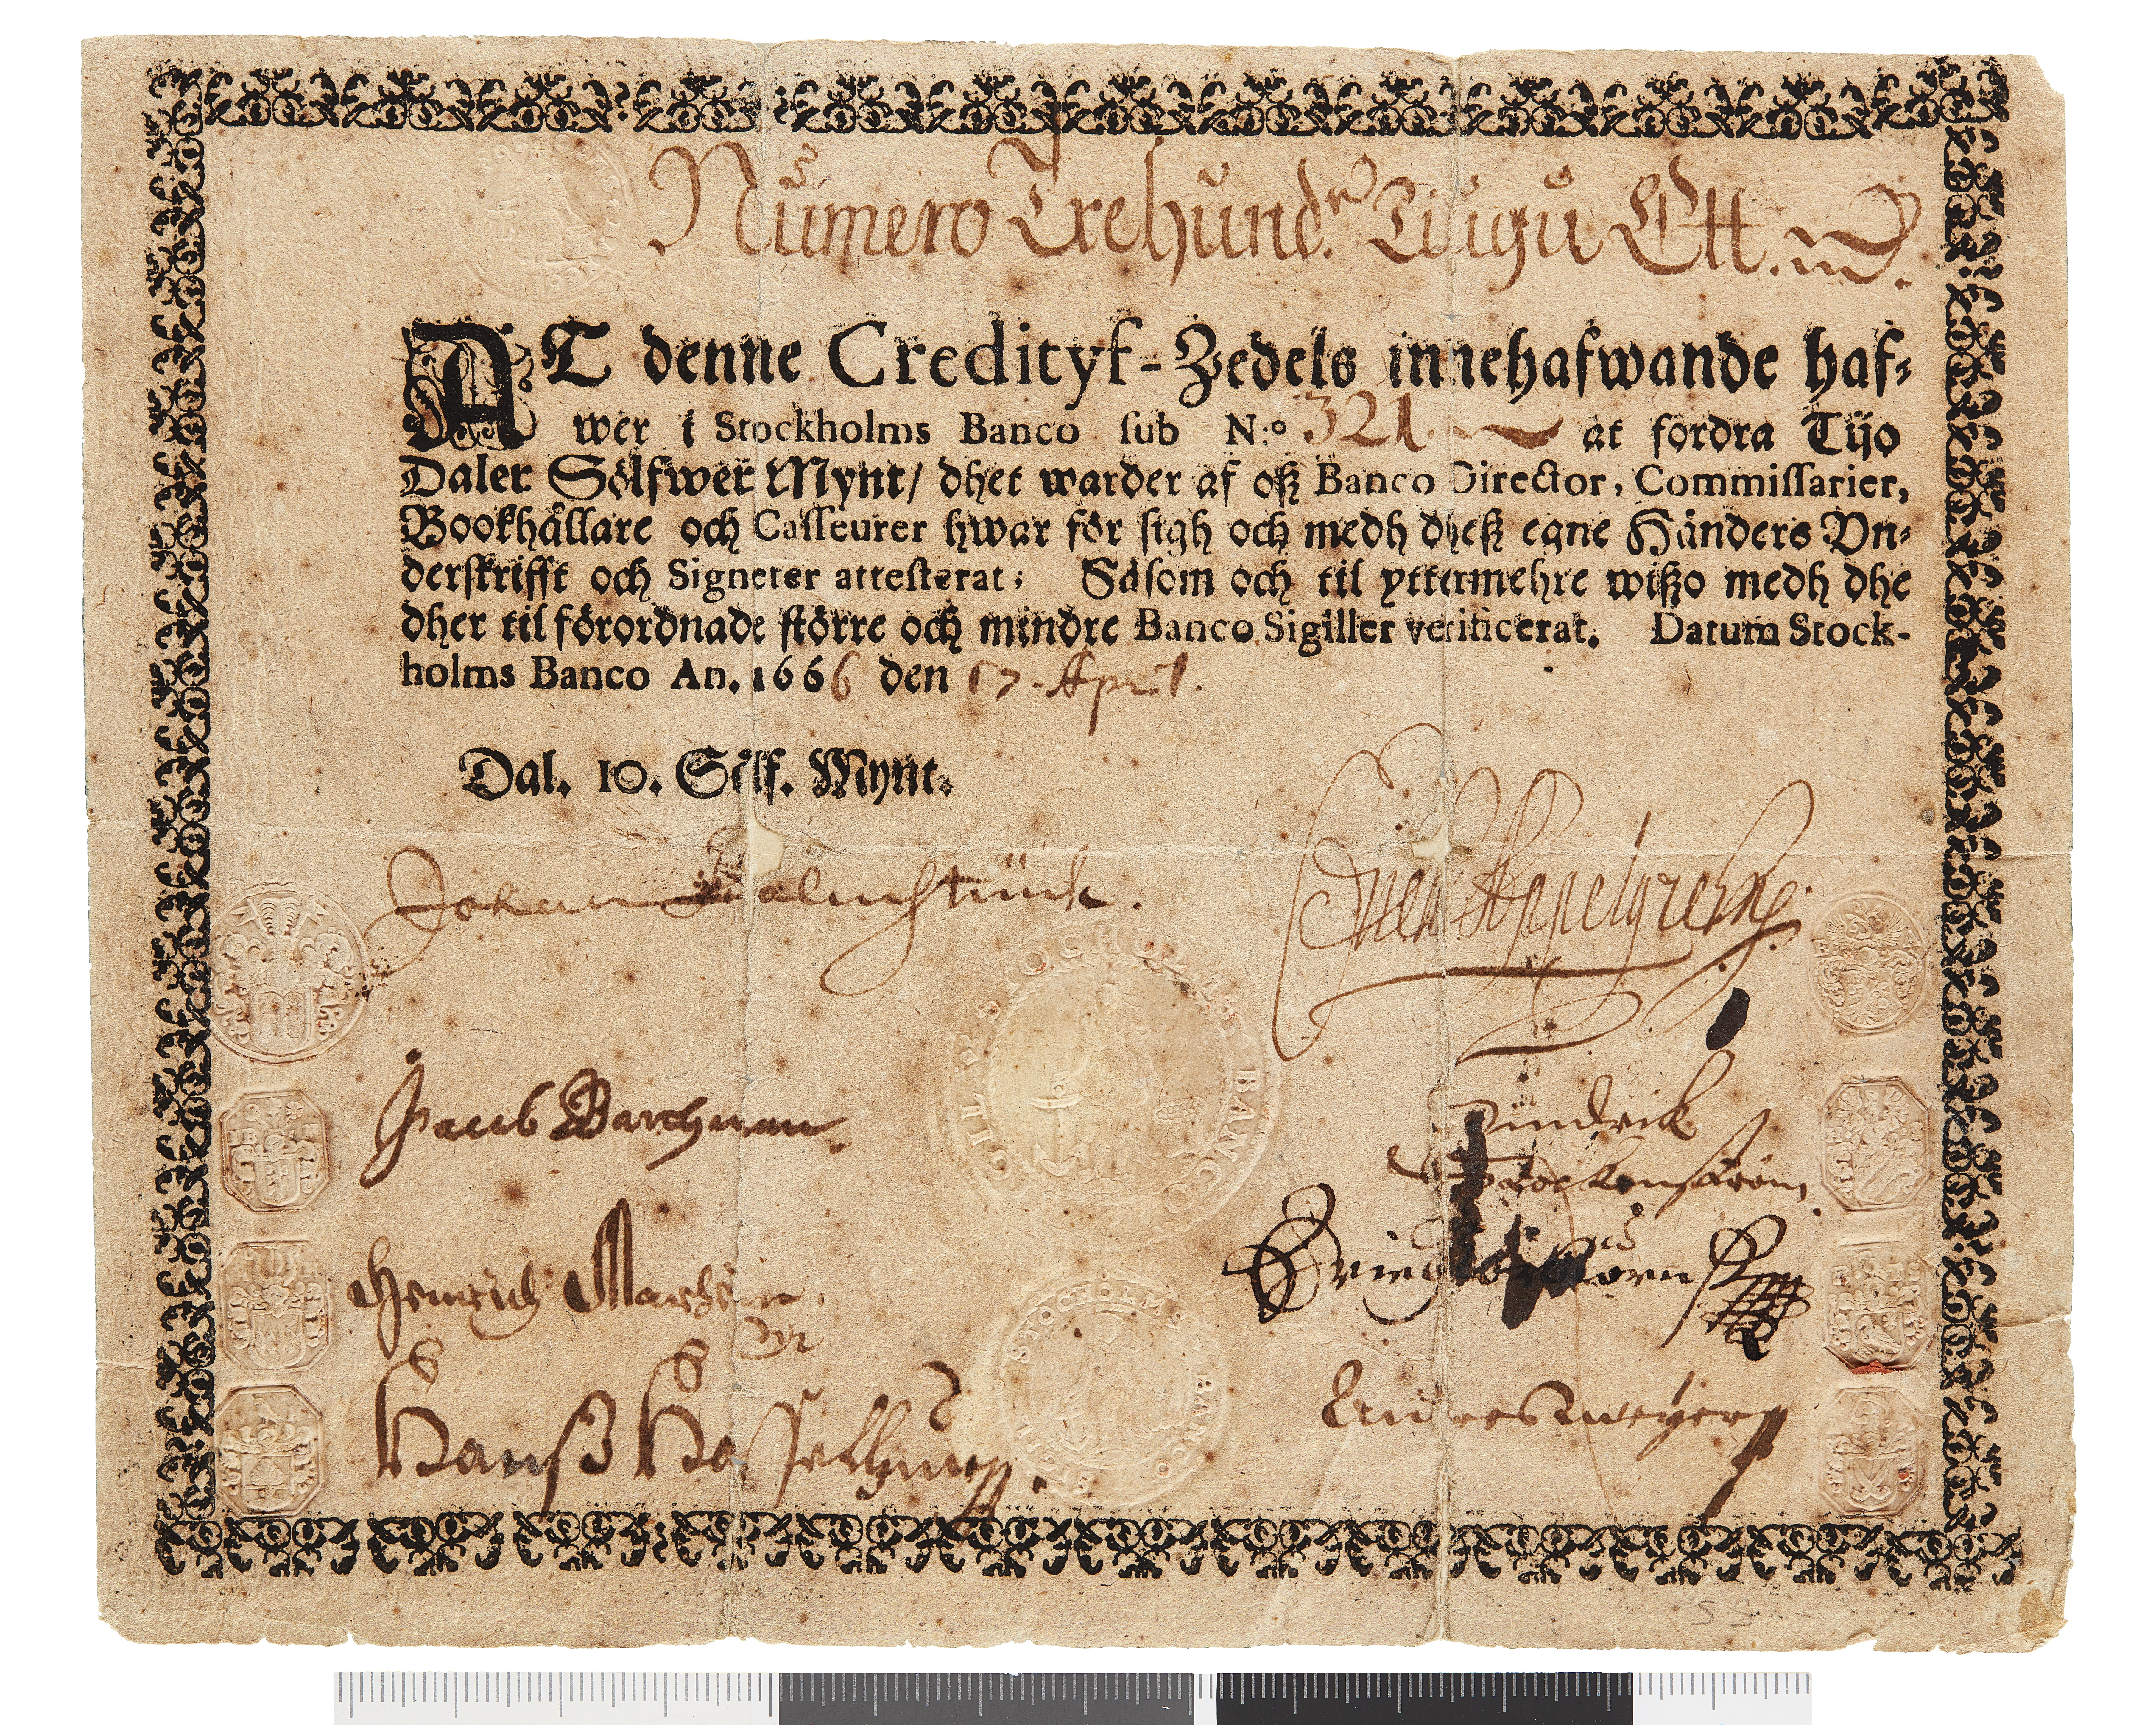 Numero Trehund. Tiugu Ett.
AT denne Credityf-Zedels innehafwande haf-
wer i Stockholms Banco sub N:o 321 at fordra Tijo
Daler Sölfwer Mynt/ dhet warder af oß Banco Director, Commissarier,
Bookhållare och Casseurer hwar för sigh och medh dheß egne Händers Vn-
derskrifft och Signeter attesterat; Såsom och til yttermehre wißo medh dhe
dher til förordnade större och mindre Banco Sigiller verificerat. Datum Stock-
holms Banco An. 1666 den 17. April.
Dal. 10. Sölf. Mynt.
Johan Palmstruck.
Appelgreen
SIGILL STOCHOLMS BANCO
Jacob Barchman.
Hindrik
Heinrich
STOCHOLMS BANCO
Hanß